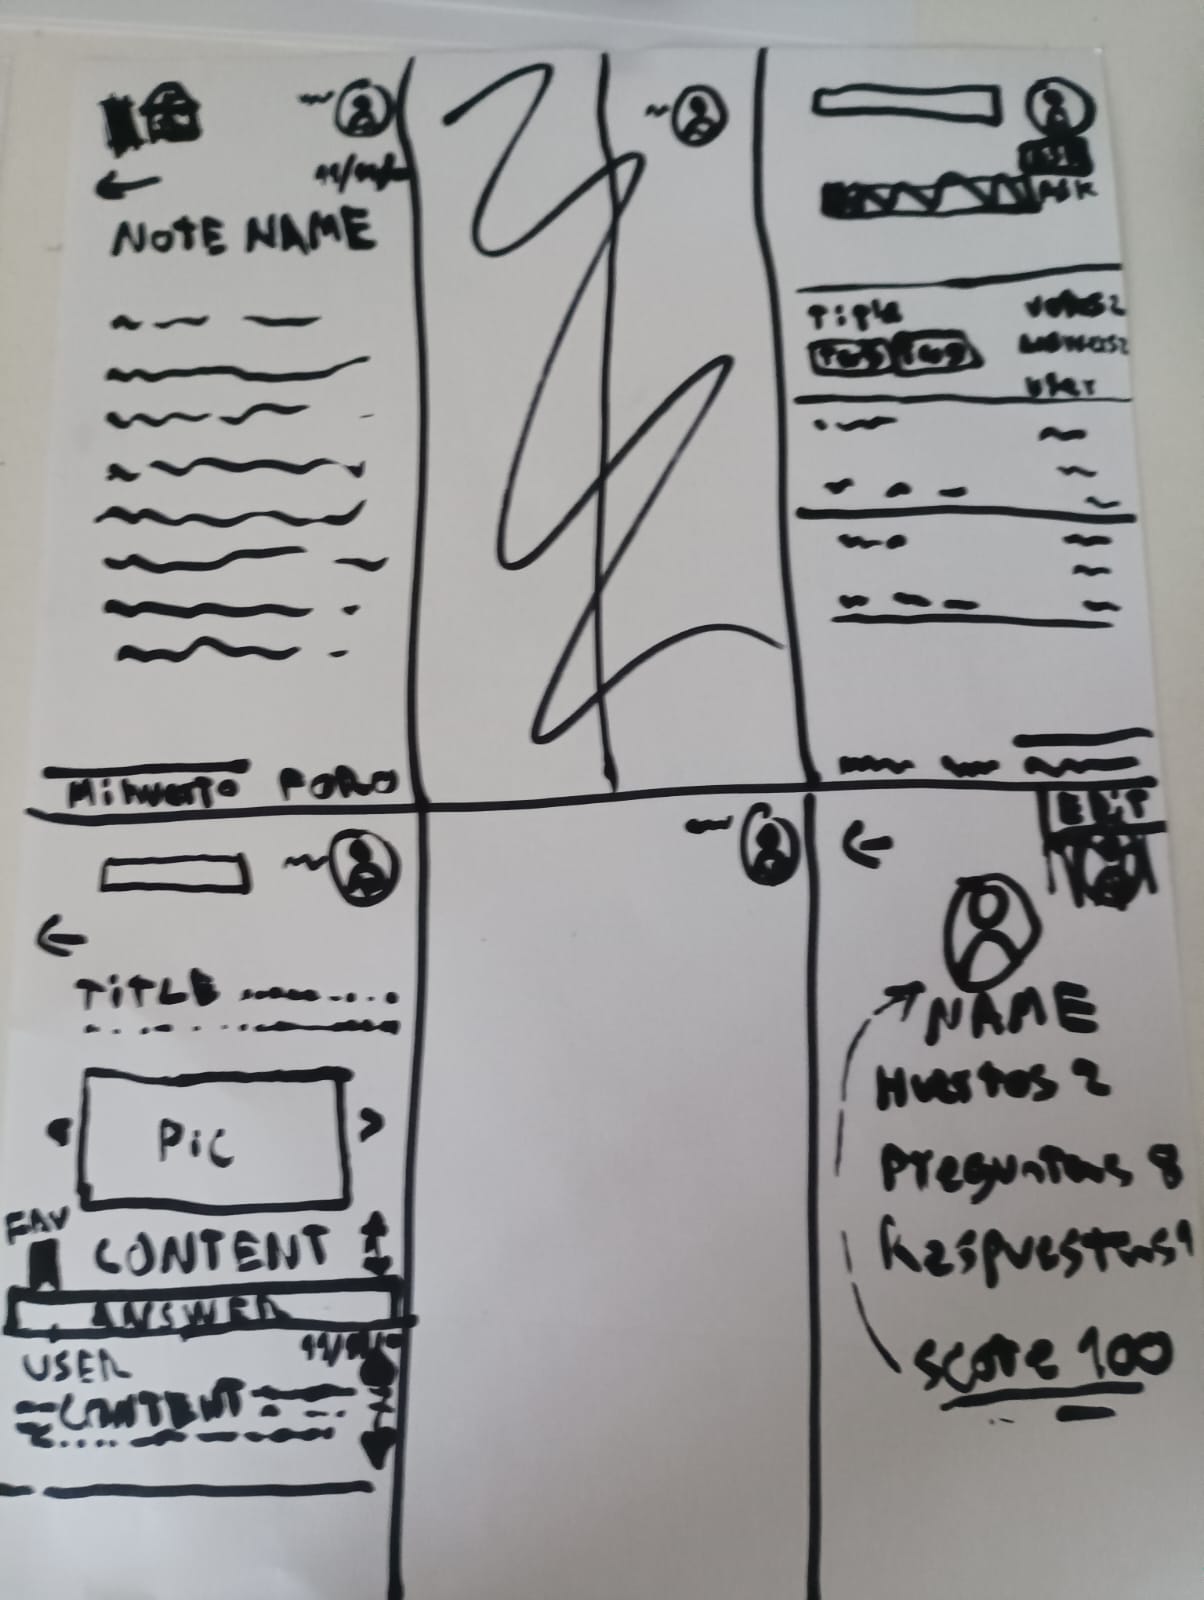 11/11/
NOTE NAME
Mihuerto FORO
ASK
Title votes 2
Tag Tag
user
EDIT
TITLE
Pic
FAV
CONTENT
ANSWER
USER
CONTENT
NAME
Huertos 2
Preguntas 8
Respuestas 9
Score 100